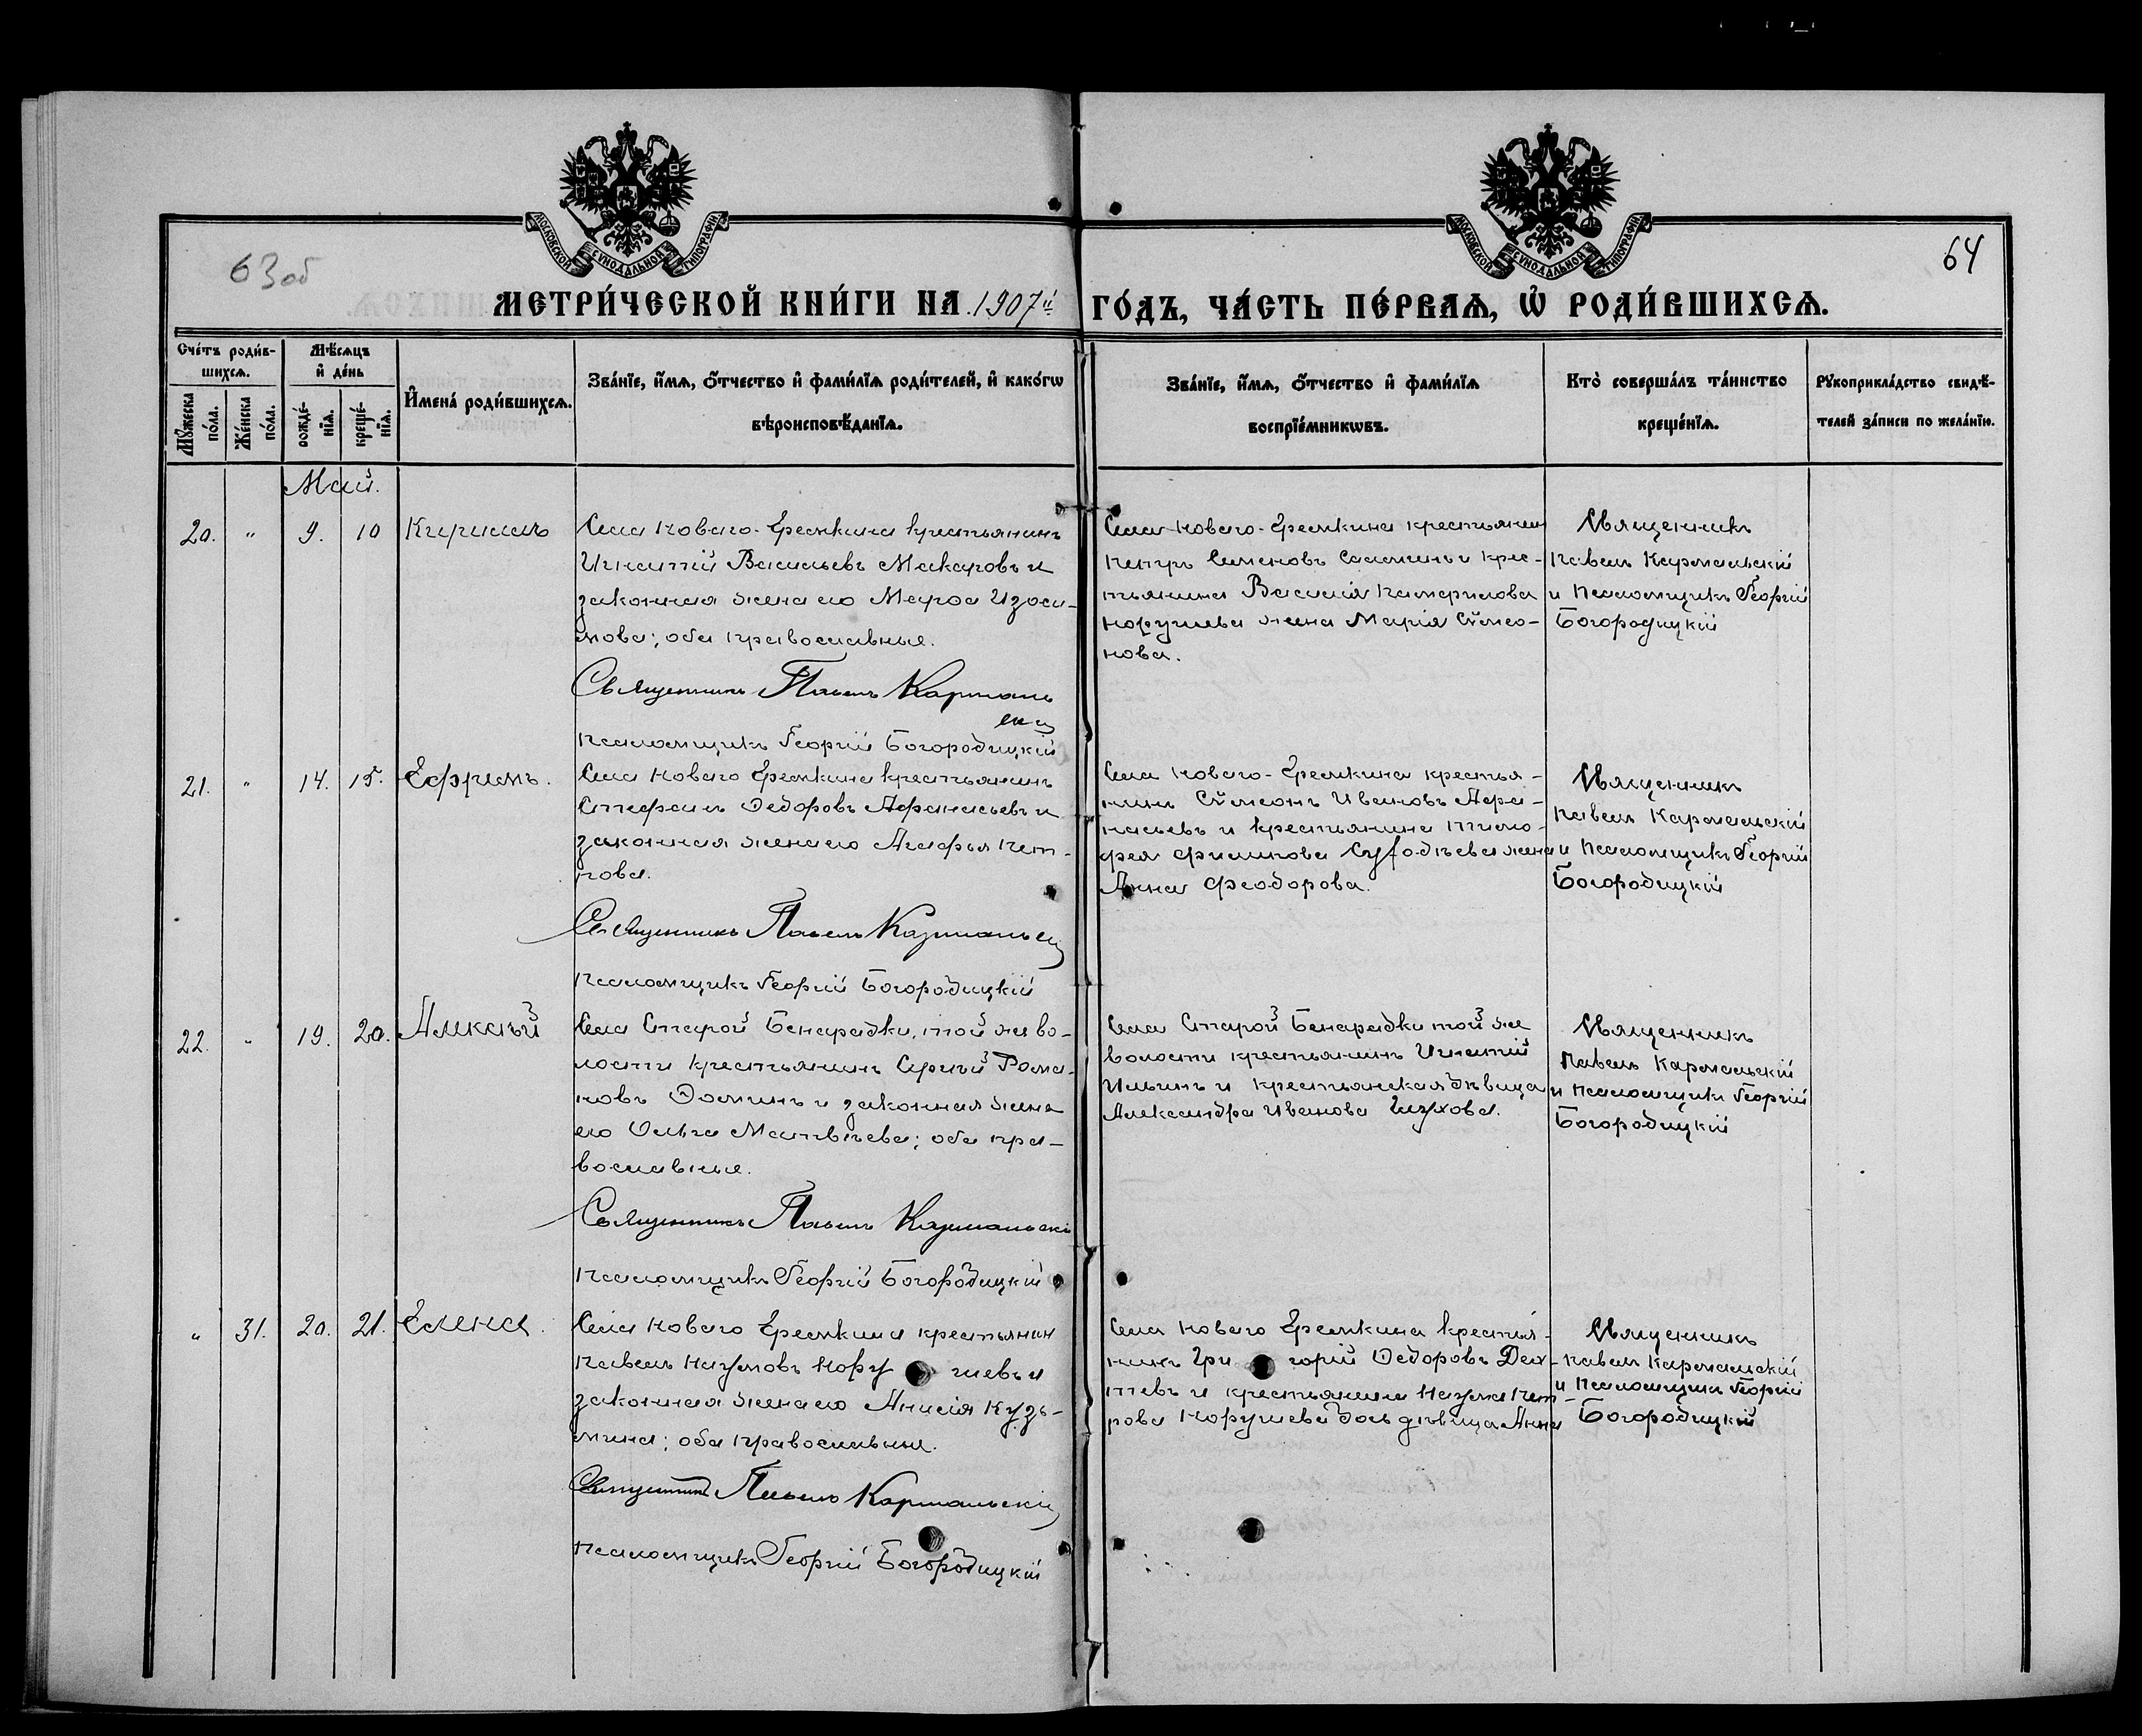 63 об
64
МОСКОВСКОЙ СѴНОДАЛЬНОЙ ТИПОГРАФІИ
МОСКОВСКОЙ СѴНОДАЛЬНОЙ ТИПОГРАФІИ
МЕТРИ́ЧЕСКОЙ КНИ́ГИ НА 1907й ГО́ДЪ, ЧА́СТЬ ПЕ́РВАѦ, Ѽ РОДИ́ВШИХСѦ.
Сче́тъ роди́в-
шихсѧ.
Мѣ́сѧцъ
и҆ де́нь
Мꙋ́жеска по́ла.
Же́нска по́ла.
рожде́-нїѧ.
креще́-нїѧ.
И҆мена̀ роди́вшихсѧ.
Зва́нїе, и҆́мѧ, ѻ҆́тчество и҆ фами́лїѧ роди́телей, и҆ како́гѡ
вѣроисповѣ́данїѧ.
Зва́нїе, и҆́мѧ, ѻ҆́тчество и҆ фами́лїѧ
воспрїе́мникѡвъ.
Кто̀ соверша́лъ та́инство
креще́нїѧ.
Рꙋкоприкла́дство свидѣ́-
телей за́писи по жела́нїю.
Май.
20. " 9. 10 Кириллъ
Села Новаго-Еремкина крестьянинъ
Игнатій Васильевъ Макаровъ и
законная жена его Марѳа Изоси-
мова; оба православные.
Священникъ Павелъ Кармаль
скій
Псаломщикъ Георгій Богородицкій
Села Новаго-Еремкина крестьянин
Петръ Семеновъ Саломинъ и крес-
тьянина Василія Памфилова
Норушева жена Марія Сѷмео-
нова.
Священникъ
Павелъ Кармальскій
и Псаломщикъ Георгій
Богородицкій
21. " 14. 15. Ефримъ.
Села Новаго Еремкина крестьянинъ
Стефанъ Ѳедоровъ Афанасьевъ и
законная жена его Агафья Пет-
рова.
Священникъ Павелъ Кармальскій
Псаломщикъ Георгій Богородицкій
Села Новаго-Еремкина крестья-
нинъ Сѷмеонъ Ивановъ Афа-
насьевъ и крестьянина Тимо-
фея Филипова жена
Анна Феодорова.
Священникъ
Павелъ Кармальскій
и Псаломщикъ Георгій
Богородицкій
22. " 19. 20. Алексѣй
Села Старой Бинарадки, той же во-
лости крестьянинъ Сергѣй Рома-
новъ Ѳоминъ и законная жена
его Ольга Матвѣева; оба пра-
вославные.
Священникъ Павелъ Кармальскій
Псаломщикъ Георгій Богородицкій
Села Старой Бинарадки той же
волости крестьянинъ Игнатій
Ильинъ и крестьянская дѣвица
Александра Иванова Глухова.
Священникъ
Павелъ Кармальскій
и Псаломщикъ Георгій
Богородицкій
" 31. 20. 21. Елена.
Села Новаго Еремкина крестьянин
Павелъ Наумовъ Нору шевъ и
законная жена его Анисія Кузь-
мина; оба православные.
Священникъ Павелъ Кармальскій
Псаломщикъ Георгій Богородицкій
Села Новаго Еремкина крестья-
нинъ Гри горій Ѳедоровъ Девя-
тевъ и крестьянина Наума Пет-
рова Норушева дочь дѣвица Анна
Священникъ
Павелъ Кармальскій
и Псаломщикъ Георгій
Богородицкій